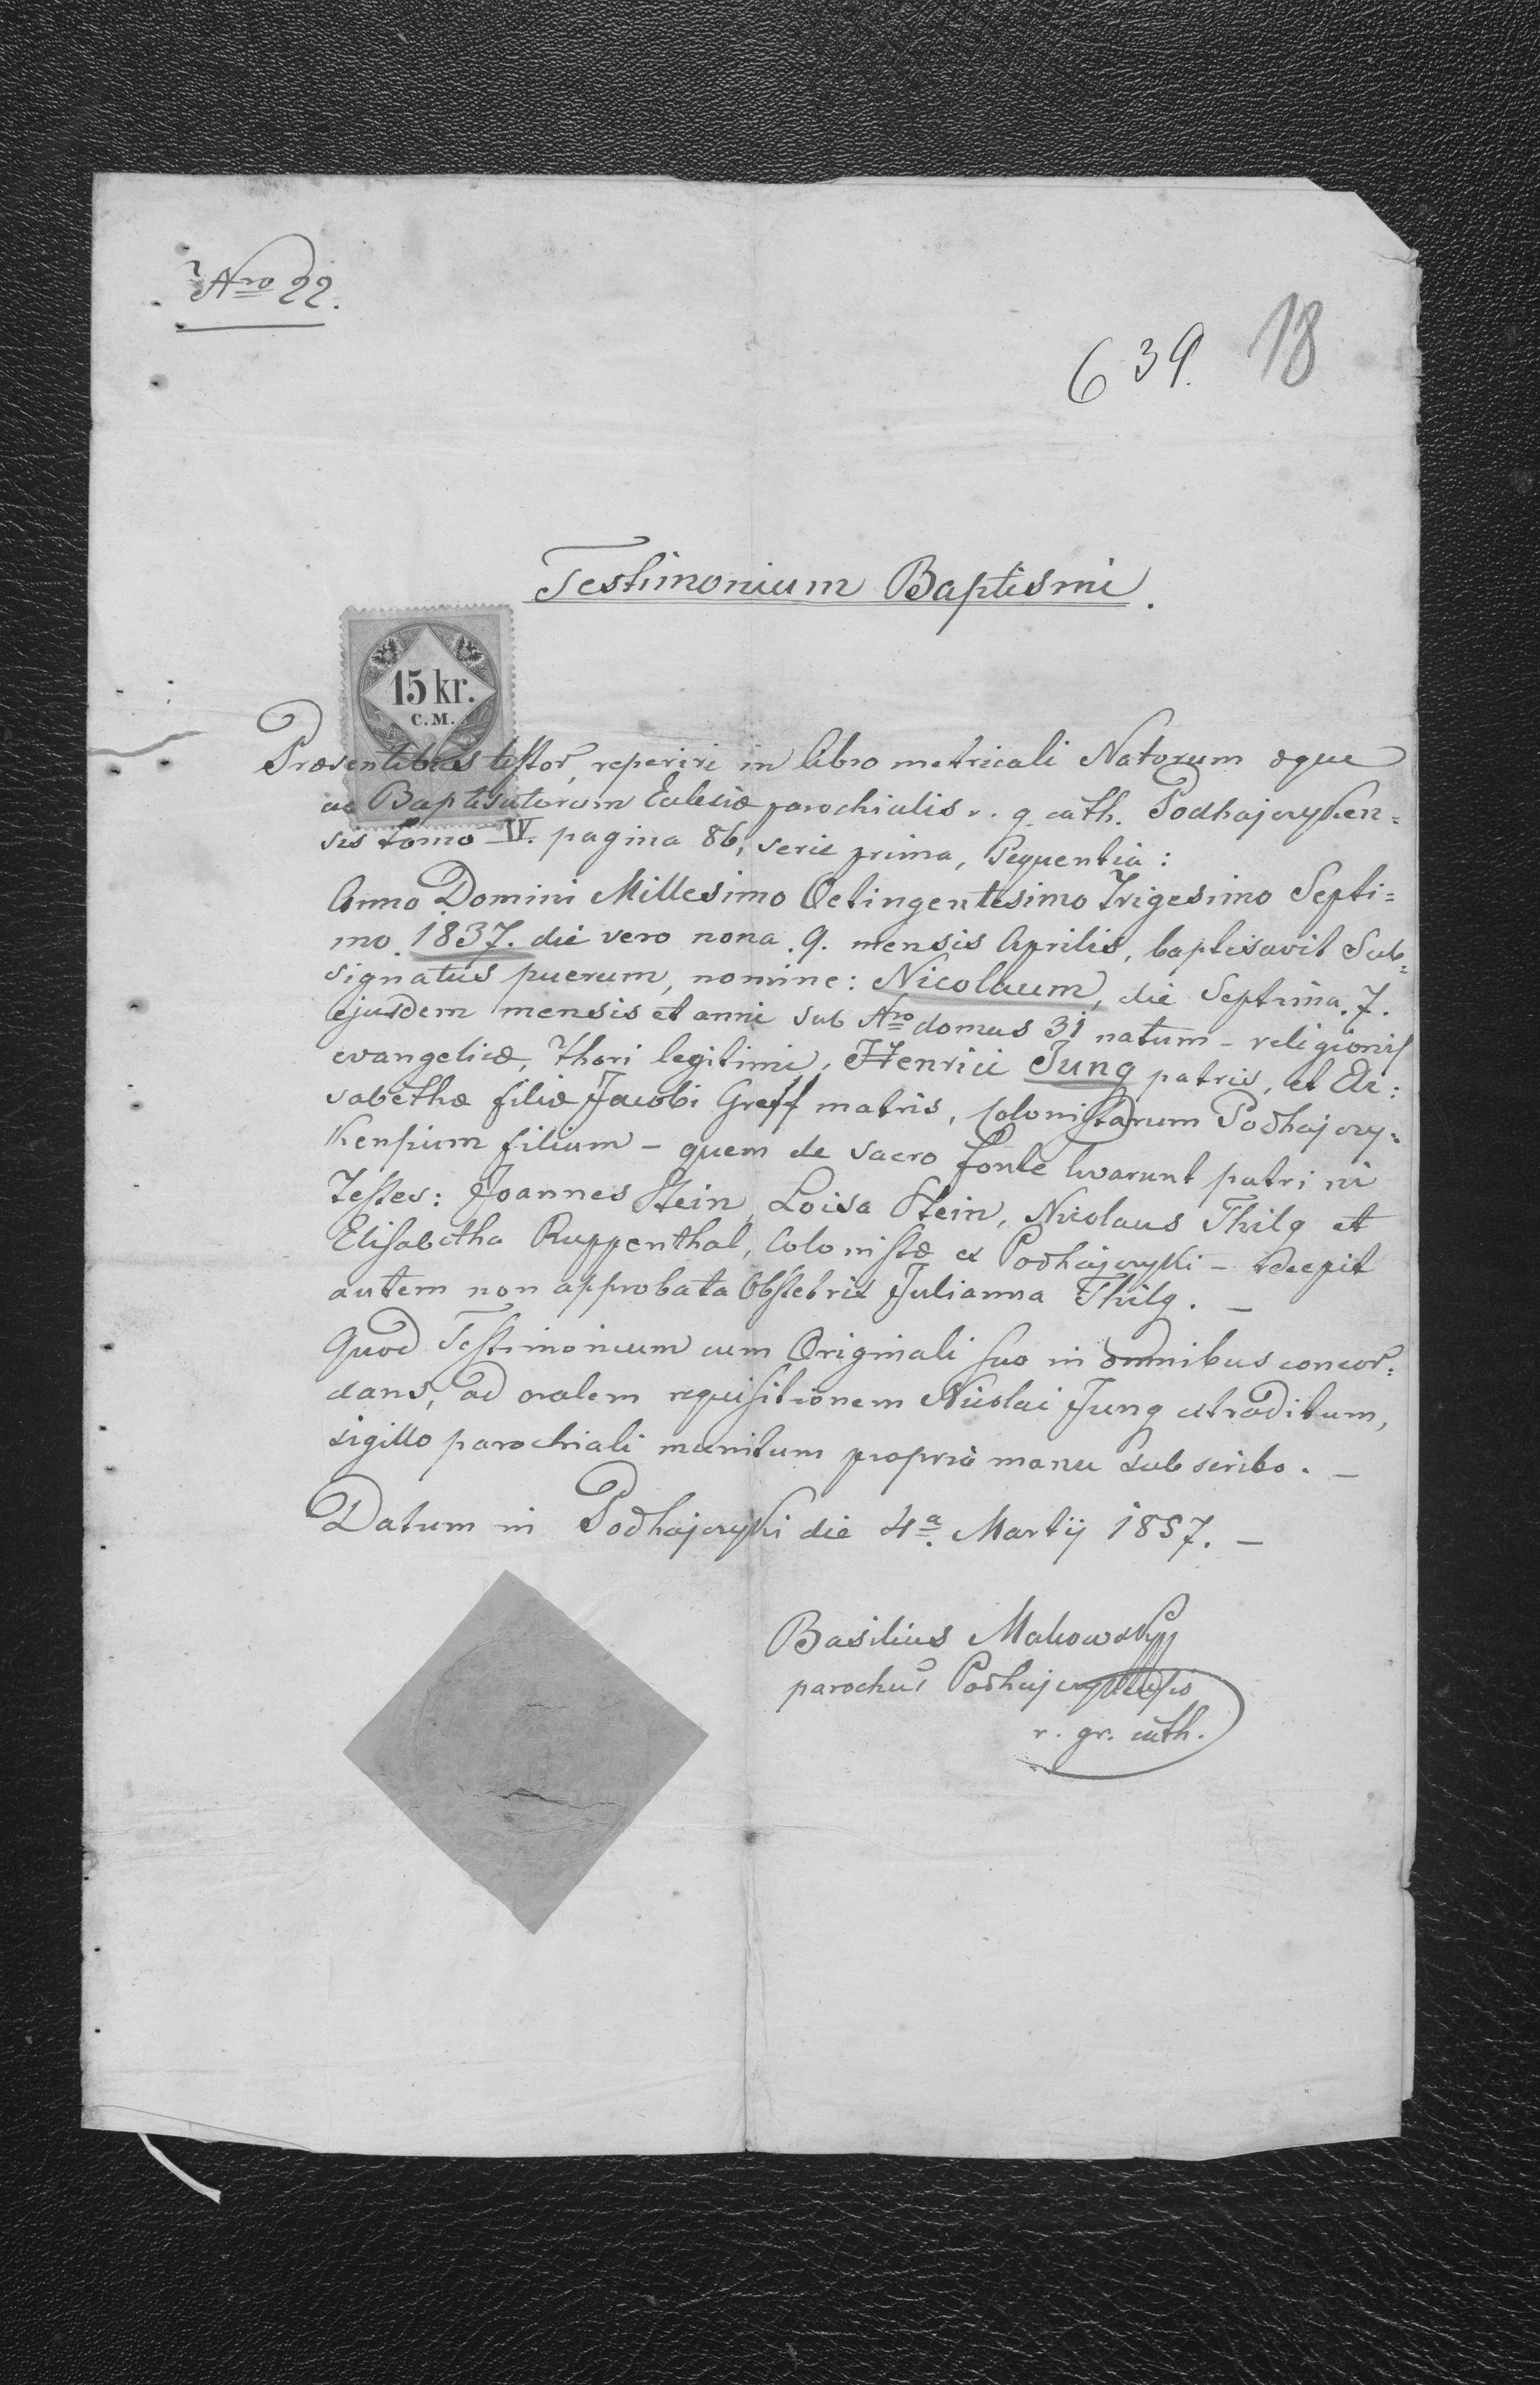 Nro 22.
639. 18
Testimonium Baptismi.
15 kr.
C.M.
Præsentibus testor, reperiri in libro metricali Natorum æque
ac Baptisatorum Eclesiæ parochialis r. g. cath. Podhajczyken=
sis tomo IV. pagina 86, serie prima, sequentia:
Anno Domini Millesimo Octingentesimo Trigesimo Septi=
mo 1837. die vero nona 9. mensis Aprilis, baptisavit Sub=
signatus puerum, nomine: Nicolaum, die Septima. 7.
ejusdem mensis et anni sub Nro domus 31 natum – religionis
evangelicæ, thori legitimi, Henrici Jung patris, et Eli=
sabethæ filiæ Jacobi Greff matris, Colonistarum Podhajczy=
kensium filium – quem de sacro fonte levarunt patrini
Testes: Joannes Stein, Loisa Stein, Nicolaus Thilg et
Elisabetha Ruppenthal, Colonistæ ex Podhajczyki – excepit
autem non approbata Obstetrix Julianna Thilg. –
Quod Testimonium cum Originali suo in omnibus concor=
dans, ad oralem requisitionem Nicolai Jung extraditum,
sigillo parochiali munitum propria manu subscribo. –
Datum in Podhajczyki die 4a. Martij 1857. –
Basilius Makowsky
parochus Podhajczykensis
r. gr. cath.